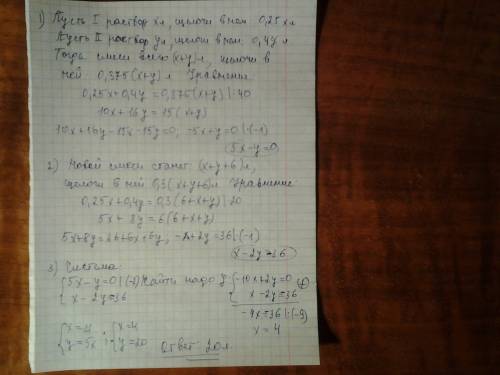 1) Пусть I раствор x л, щелочи в нем 0,25x л
Пусть II раствор y л, щелочи в нем 0,4y л
Тогда смеси всего (x+y) л, щелочи в
ней 0,375(x+y) л Уравнение
0,25x+0,4y=0,375(x+y)|·40
10x+16y=15(x+y)
10x+16y-15x-15y=0, -5x+y=0|·(-1)
5x-y=0
2) Новой смеси станет (x+y+6) л,
щелочи в ней 0,3(x+y+6) л Уравнение
0,25x+0,4y=0,3(6+x+y)|·20
5x+8y=6(6+x+y)
5x+8y=36+6x+6y, -x+2y=36|·(-1)
x-2y=36
3) Система
{5x-y=0|·(-2) Найти надо y {-10x+2y=0
{x-2y=36 x-2y=36
-9x=36|:(-9)
x=4
{x=4 ; {x=4
{y=5x {y=20 Ответ: 20 л.